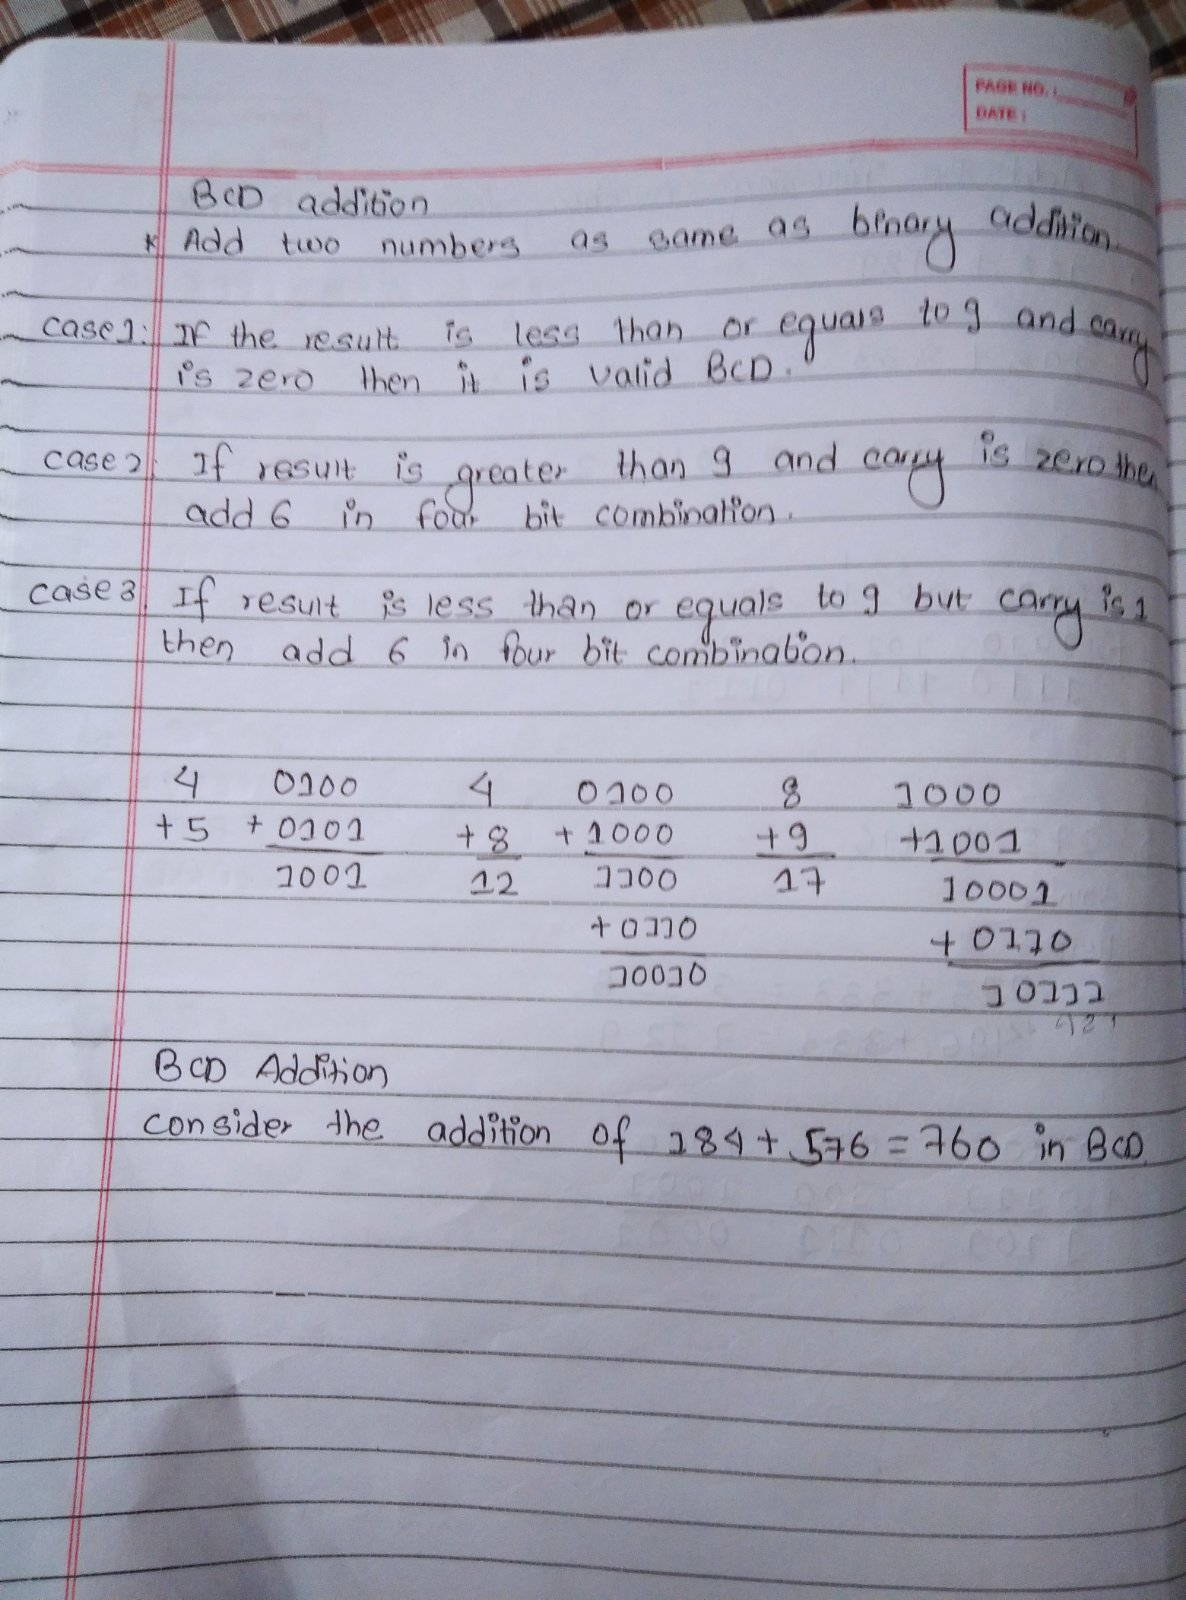 PAGE NO. :
DATE :
BCD addition
* Add two numbers as same as binary addition.
case1: If the result is less than or equals to 9 and carry
is zero then it is valid BCD.
case2 If result is greater than 9 and carry is zero then
add 6 in four bit combination.
case3 If result is less than or equals to 9 but carry is 1
then add 6 in four bit combination.
4 0100 4 0100 8 1000
+5 +0101 +8 +1000 +9 +1001
1001 12 1100 17 10001
+0110 +0110
10010 10111
421
BCD Addition
consider the addition of 184+576=760 in BCD.